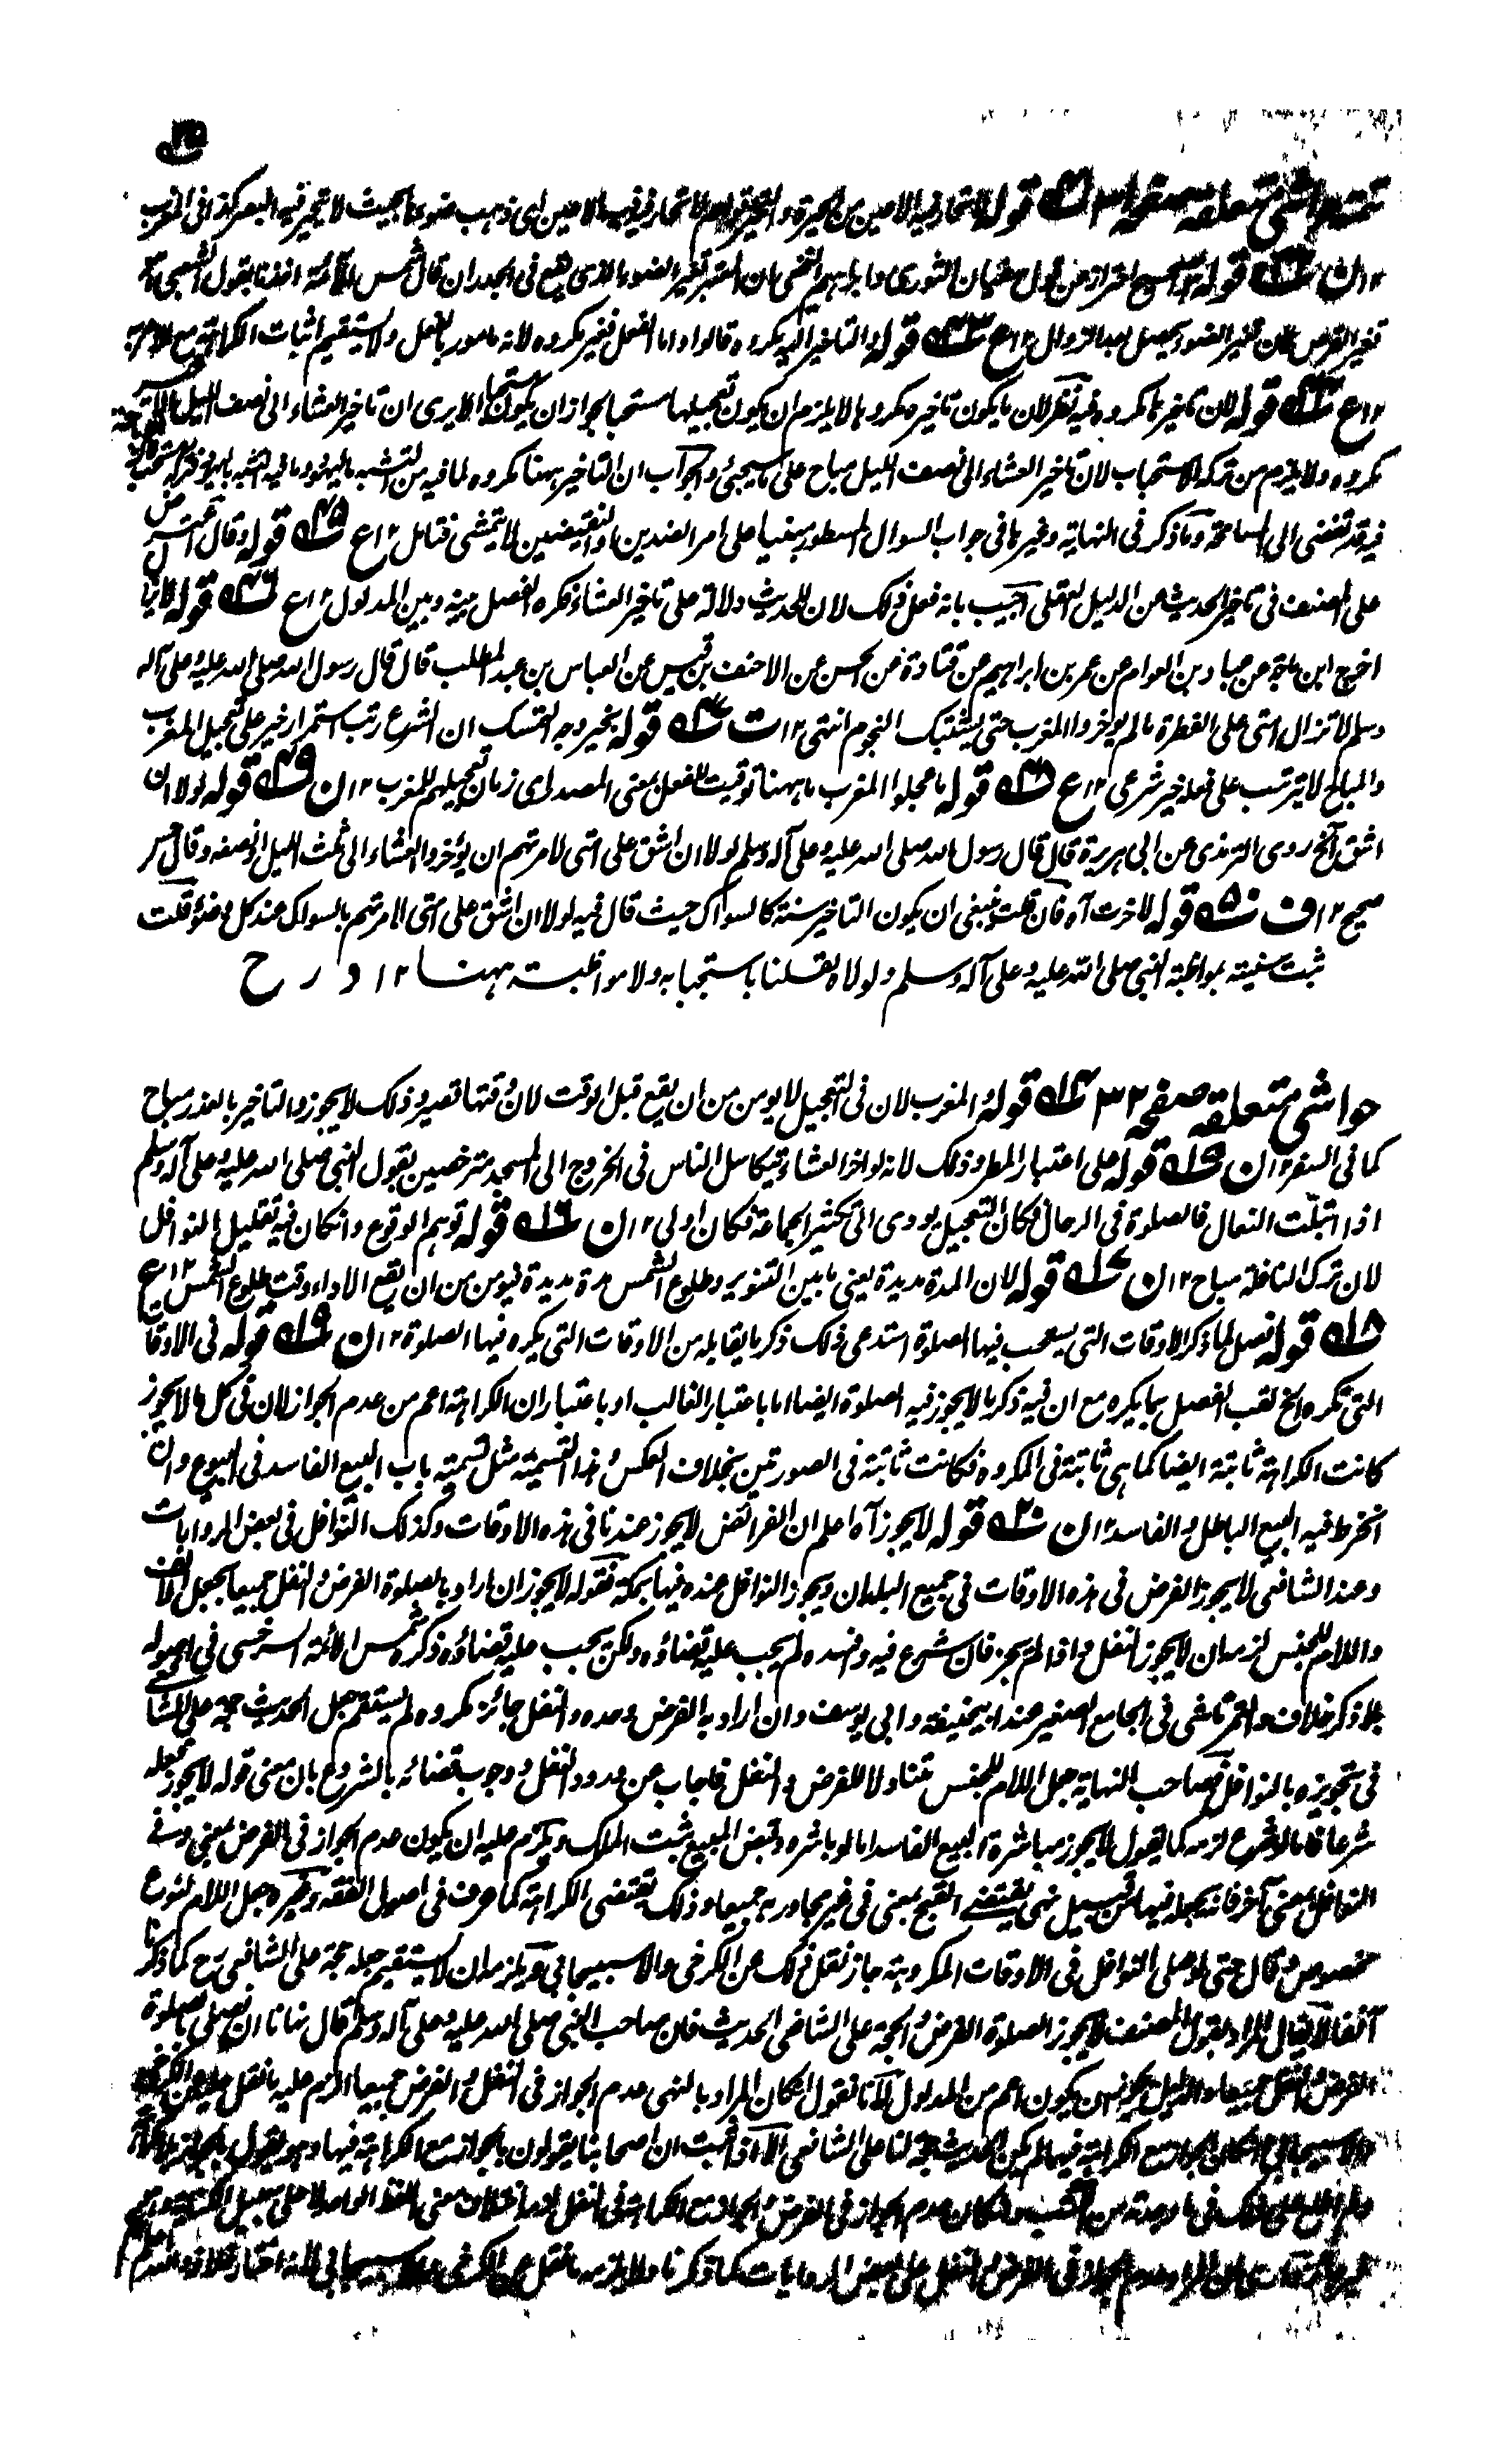 تتمه حواشی متعلقه صفحه ٣١ قوله لا تتحار فیه الاعین من الحیرة والتحیر ای ذهب ضوءها بحیث لا تتحیر فیه البصر کذا فی المغرب
١٢ ن قوله هو الصحیح احتراز عن قول سفیان الثوری وابراهیم النخعی ان المعتبر تغیر الضوء الذی یقع فی الجدران قال شمس الائمة اخذنا بقول الشعبی
تغیر القرص لان تغیر الضوء یحصل بعد الزوال ١٢ ع قوله والتاخیر الیه مکروه قالوا واما الفعل فغیر مکروه لانه مامور بالفعل ولا یستقیم اثبات الکراهة مع الامر به
١٢ ع قوله لان تاخیرها مکروه وفیه نظر لان ما یکون تاخیره مکروها لا یلزم ان یکون تعجیلها مستحبا لجواز ان یکون مباحا الا یری ان تاخیر العشاء الی نصف اللیل
مکروه ولا یلزم من ترکه الاستحباب لان تاخیر العشاء الی نصف اللیل مباح علی ما سیجئ والجواب ان التاخیر ههنا مکروه لما فیه من التشبه بالیهود
فیه قد تفضی الی المسامحة وما ذکر فی النهایة وغیرها فی جواب السوال المسطور مبنیا علی امر الضدین او النقیضین لا یتمشی فتامل ١٢ ع قوله وقال
علی المصنف فی تاخیر الحدیث عن الدلیل العقلی اجیب بانه فعل ذلک لان للحدیث دلالة علی تاخیر العشاء فکره الفصل بینه وبین المدلول ١٢ ع قوله
اخرج ابن ماجة عن عباد بن العوام عن عمر بن ابراهیم عن قتادة عن الحسن عن الاحنف بن قیس عن العباس بن عبد المطلب قال قال رسول الله صلی الله علیه وعلی آله
وسلم لا تزال امتی علی الفطرة ما لم یوخروا المغرب حتی یشتبک النجوم انتهی ١٢ ت قوله بخیر وجه التمسک ان الشرع رتب استمرار خیر علی تعجیل المغرب
والمباح لا یترتب علی فعله خیر شرعی ١٢ ع قوله ما عجلوا المغرب ما ههنا توقیت للفعل بمعنی المصدر ای زمان تعجیلهم للمغرب ١٢ ن قوله لولا ان
اشق الخ روی الترمذی عن ابی هریرة قال قال رسول الله صلی الله علیه وعلی آله وسلم لولا ان اشق علی امتی لامرتهم ان یؤخروا العشاء الی ثلث اللیل او نصفه وقال حسن
صحیح ١٢ ف قوله لاخرت آه فان قلت فینبغی ان یکون التاخیر سنة کالسواک حیث قال فیه لولا ان اشق علی امتی لامرتهم بالسواک عند کل وضوء قلت
ثبت سنیته بمواظبة النبی صلی الله علیه وعلی آله وسلم ولولاه لقلنا باستحبابه ولا مواظبة ههنا ١٢ د ر ح
حواشی متعلقه صفحه ٣٢ قوله والمغرب لان فی التعجیل لا یومن من ان یقع قبل الوقت لان وقتها قصیر وذلک لا یجوز والتاخیر بالعذر مباح
کما فی السفر ١٢ ن قوله علی اعتبار المطر وذلک لانه لو اخر العشاء تیکاسل الناس فی الخروج الی المسجد مترخصین بقول النبی صلی الله علیه وعلی آله وسلم
اذا ابتلت النعال فالصلوة فی الرحال فکان التعجیل یودی الی تکثیر الجماعة فکان اولی ١٢ ن قوله توهم الوقوع وان کان فیه تقلیل النوافل
لان ترک النافلة مباح ١٢ ن قوله لان المدة مدیدة یعنی ما بین التنویر وطلوع الشمس مدة مدیدة فیومن من ان یقع الاداء وقت طلوع الشمس ١٢ ع
قوله فصل لما ذکر الاوقات التی یستحب فیها الصلوة استدعی ذلک ذکر ما یقابله من الاوقات التی یکره فیها الصلوة ١٢ ن قوله فی الاوقات
التی تکره الخ لقب الفصل بما یکره مع ان فیه ذکر ما لا یجوز فیه الصلوة ایضا اما باعتبار الغالب او باعتبار ان الکراهة اعم من عدم الجواز لان فی کل ما لا یجوز
کانت الکراهة ثابتة ایضا کما هی ثابتة فی المکروه فکانت ثابتة فی الصورتین بخلاف العکس وهذا التسمیة مثل تسمیة باب البیع الفاسد فی البیوع وان
انخرط فیه البیع الباطل والفاسد ١٢ ن قوله لا یجوز آه اعلم ان الفرائض لا یجوز عندنا فی هذه الاوقات وکذلک النوافل فی بعض الروایات
وعند الشافعی لا یجوز الفرض فی هذه الاوقات فی جمیع البلدان ویجوز النوافل عنده فیها بمکة فقوله لا یجوز ان اراد بالصلوة الفرض والنفل جمیعا بجعل الالف
واللام للجنس لزمه ان لا یجوز النفل واذا لم یجز فان شرع فیه وافسده لم یجب علیه قضاؤه ولکن یجب علیه قضاؤه ذکره شمس الائمة السرخسی فی اصوله
بلا ذکر خلاف والتمرتاشی فی الجامع الصغیر عند ابی حنیفة وابی یوسف وان اراد به الفرض وحده والنفل جائز مکروه لم یستقم جعل الحدیث حجة علی الشافعی
فی تجویزه بالنوافل فصاحب النهایة جعل اللام للجنس متناولا للفرض والنفل فاجاب عن ورود النفل ووجوب قضائه بالشروع بان معنی قوله لا یجوز فعله
شرعا فاما لو شرع لزمه کما یقول لا یجوز مباشرة البیع الفاسد اما لو باشره وقبض المبیع ثبت الملک ویلزم علیه ان یکون عدم الجواز فی الفرض بمعنی وفی
النوافل بمعنی آخر فانه یجعله فیها من قبیل نهی یقتضی القبح بمعنی فی غیر مجاور به جمیعا وذلک یقتضی الکراهة کما عرف فی اصول الفقه وغیره جعل اللام لنوع
مخصوص وقال حتی لو صلی النوافل فی الاوقات المکروهة جاز نقل ذلک عن الکرخی والاسبیجابی ویلزمه ان لا یستقیم جعله حجة علی الشافعی رح کما ذکرنا
آنفا لا یقال المراد بقول المصنف لا یجوز الصلوة الفرض والحجة علی الشافعی الحدیث فان صاحب النبی صلی الله علیه وعلی آله وسلم قال نهانا ان نصلی والصلوة
الفرض والنفل جمیعا والدلیل یجوز ان یکون اعم من المدلول لانا نقول ان کان المراد بالنهی عدم الجواز فی النفل والفرض جمیعا لزم علیه ما نقل عن الکرخی
والاسبیجابی وان کان الجواز مع الکراهة فیها لم یکن الحدیث حجة لنا علی الشافعی الا اذا ثبت ان اصحابنا یقولون بالجواز مع الکراهة فیها وهو یقول بالجواز
ولم اطلع علی ذلک فی ما وجدته من الکتب وان کان عدم الجواز فی الفرض والجواز مع الکراهة فی النفل لزم اختلاف معنی اللفظ الواحد لا علی سبیل
ان المراد عدم الجواز فی الفرض والنفل علی بعض الروایات کما ذکرنا ولا یلزمه ما نقل عن الکرخی والاسبیجابی لانه اختار